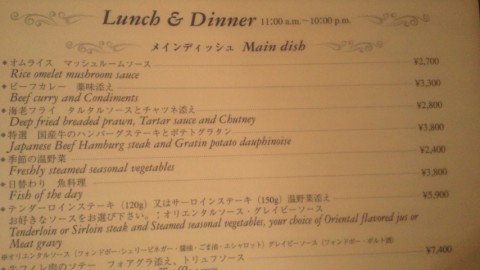 Lunch & Dinner 11:00 a.m.~10:00 p.m.
メインディッシュ Main dish
オムライス マッシュルームソース ¥2,700
Rice omelet mushroom sauce
ビーフカレー 薬味添え ¥3,300
Beef curry and Condiments
海老フライ タルタルソースとチャツネ添え ¥2,800
Deep fried breaded prawn, Tartar sauce and Chutney
特選 国産牛のハンバーグステーキとポテトグラタン ¥3,800
Japanese Beef Hamburg steak and Gratin potato dauphinoise
季節の温野菜 ¥2,400
Freshly steamed seasonal vegetables
日替わり 魚料理 ¥3,800
Fish of the day
テンダーロインステーキ (120g) 又はサーロインステーキ (150g) 温野菜添え ¥5,900
お好きなソースをお選び下さい。:オリエンタルソース・グレイビーソース
Tenderloin or Sirloin steak and Steamed seasonal vegetables, your choice of Oriental flavored jus or
Meat gravy
※オリエンタルソース (フォンドボーシェリービネガー・醤油・ごま油・エシャロット) グレイビーソース (フォンドボー・ポルト酒)
牛フィレ肉のソテー フォアグラ添え、トリュフソース ¥7,400